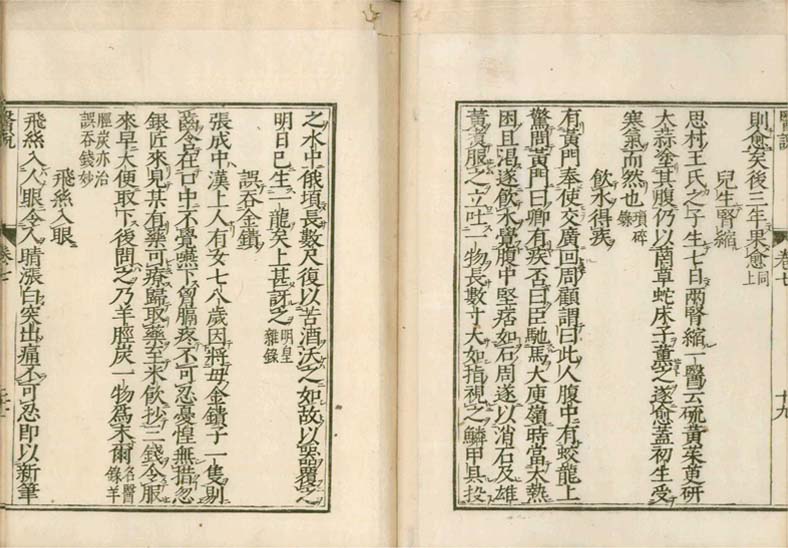 醫說 卷七 十九
則愈矣後三年果愈同上
兒生腎縮
思村王氏之子生七日兩腎縮一醫云硫黃茱萸研
大蒜塗其腹仍以南草蛇床子薰之遂愈蓋初生受
寒氣而然也瑣碎錄
飲水得疾
有黃門奉使交廣回周顧謂曰此人腹中有蛟龍上
驚問黃門曰卿有疾否曰臣馳馬大庾嶺時當大熱
困且渴遂飲水覺腹中堅痞如石周遂以消石及雄
黃煑服之立吐一物長數寸大如指視之鱗甲具投
之水中俄頃長數尺復以苦酒沃之如故以器覆之
明日已生一龍矣上甚訝之明皇雜錄
誤吞金鐀
張成中漢上人有女七八歲因將母金鐀子一隻剔
齒含在口中不覺嚥下胷膈疼不可忍憂惶無措忽
銀匠來見某有藥可療歸取藥至米飲抄三錢令服
來早大便取下後問之乃羊脛炭一物爲末爾名醫錄羊
脛炭亦治誤吞錢妙
飛絲入眼
飛絲入人眼令人睛漲白突出痛不可忍即以新筆
醫說 卷七